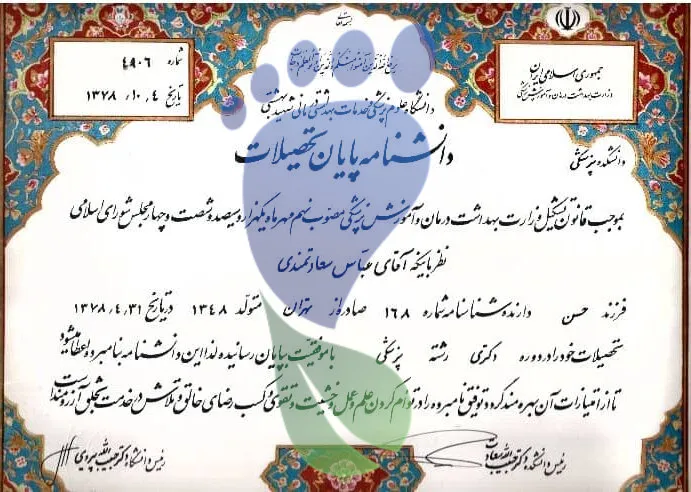 بسمه تعالی
جمهوری اسلامی ایران
وزارت بهداشت درمان و آموزش پزشکی
شماره ۴۹۰۶
تاریخ ۱۳۷۸٫۱۰٫۴
دانشگاه علوم پزشکی و خدمات بهداشتی درمانی شهید بهشتی
دانشکده پزشکی
دانشنامه پایان تحصیلات
بموجب قانون تشکیل وزارت بهداشت درمان و آموزش پزشکی مصوب نهم مهرماه یکهزار و سیصد و شصت و چهار مجلس شورای اسلامی
نظر باینکه آقای عباس سعادتمندی
فرزند حسن دارنده شناسنامه شماره ۱۶۸ صادره از تهران متولد ۱۳۴۸ در تاریخ ۱۳۷۸٫۴٫۳۱
تحصیلات خود را در دوره دکتری رشته پزشکی با موفقیت بپایان رسانیده لذا این دانشنامه بنامبرده اعطا میشود
تا از امتیازات آن بهره مند گردد و توفیق نامبرده را در توام کردن علم و عمل و خشیت و تقوی و کسب رضای خالق و تلاش در خدمت بخلق آرزومند است
رئیس دانشکده دکتر حبیب الله سعادت
رئیس دانشگاه دکتر حبیب الله پیروی